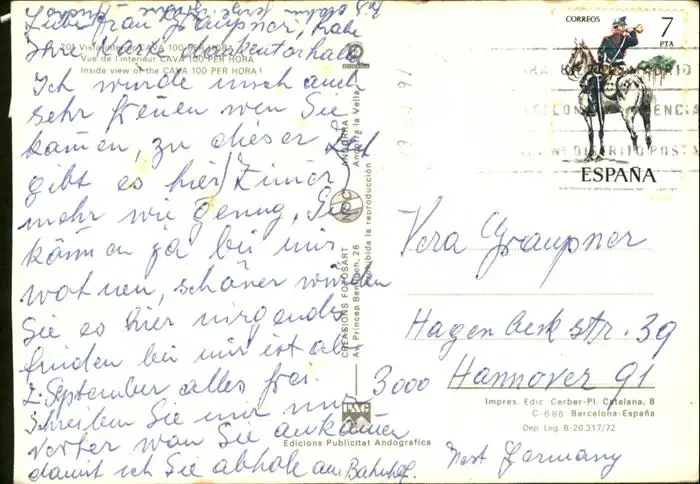 Liebe Frau Graupner, habe
Ihre Karte dankend erhalten
Ich würde mich auch
sehr freuen wen Sie
kämen, zu dieser Zeit
gibt es hier Zimer
mehr wie genug, Sie
können ja bei mir
wohnen, schöner würden
Sie es hier nirgends
finden bei mir ist ab
2. September alles frei.
Schreiben Sie mir nur
vorher wan Sie ankämen
damit ich Sie abhole am Bahnhof.
201 Vista interior CAVA 100 PER HORA
Vue de l'intérieur CAVA 100 PER HORA
Inside view of the CAVA 100 PER HORA
CREASIONS FOTOSART ANDORRA
Av. Princep Benlloch, 26 Andorra la Vella
Prohibida la reproducción
Edicions Publicitat Andogràfica
CORREOS 7
PTA
ESPAÑA
Vera Graupner
Hagenbeck str. 39
3000 Hannover 91
Impres. Edic. Gerber-Pl. Catalana, 8
C-686 Barcelona-España
Dep. Leg. B-26.317/72
West Germany